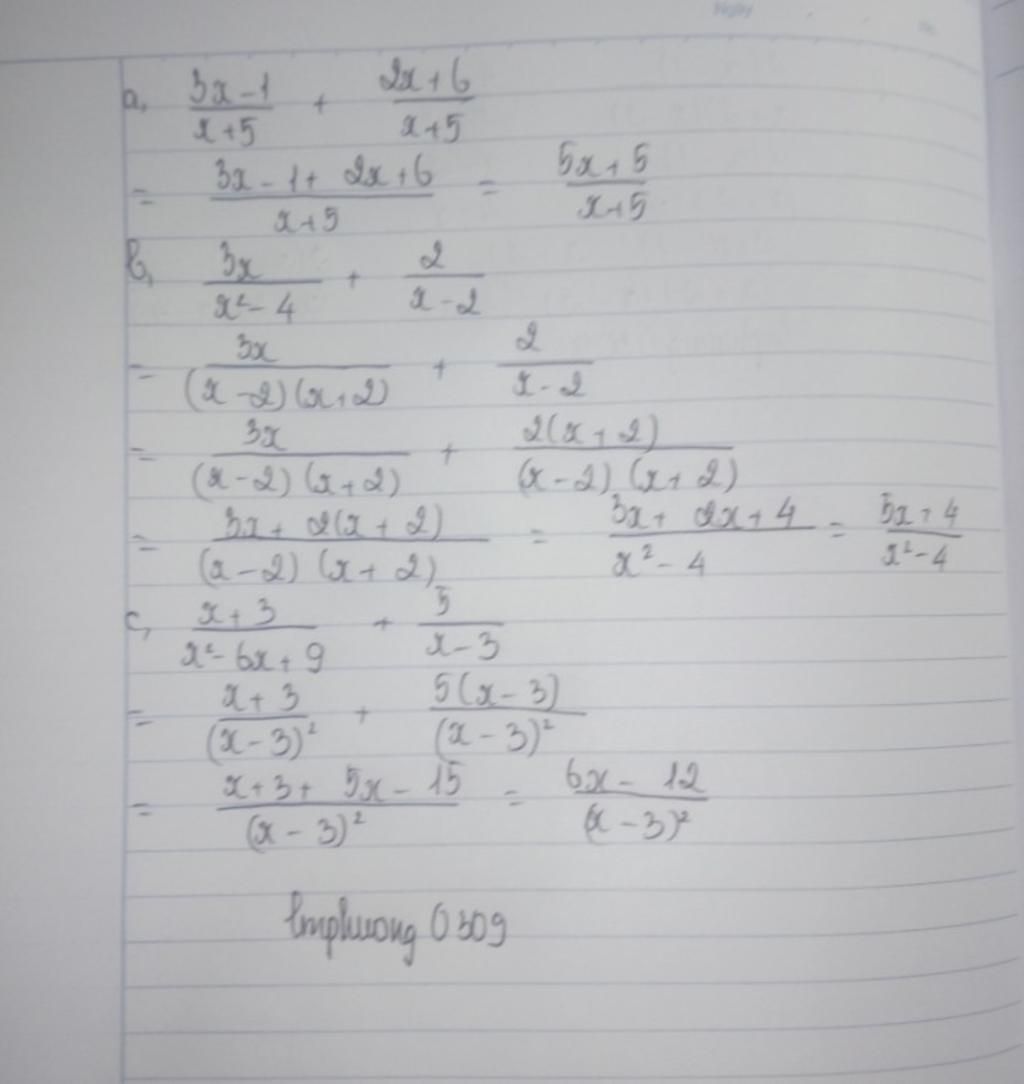 Ngày
a, (3x-1)/(x+5) + (2x+6)/(x+5)
= (3x-1+2x+6)/(x+5) = (5x+5)/(x+5)
b, 3x/(x²-4) + 2/(x-2)
= 3x/((x-2)(x+2)) + 2/(x-2)
= 3x/((x-2)(x+2)) + 2(x+2)/((x-2)(x+2))
= (3x+2(x+2))/((x-2)(x+2)) = (3x+2x+4)/(x²-4) = (5x+4)/(x²-4)
c, (x+3)/(x²-6x+9) + 5/(x-3)
= (x+3)/(x-3)² + 5(x-3)/(x-3)²
= (x+3+5x-15)/(x-3)² = (6x-12)/(x-3)²
lmphuong 0309